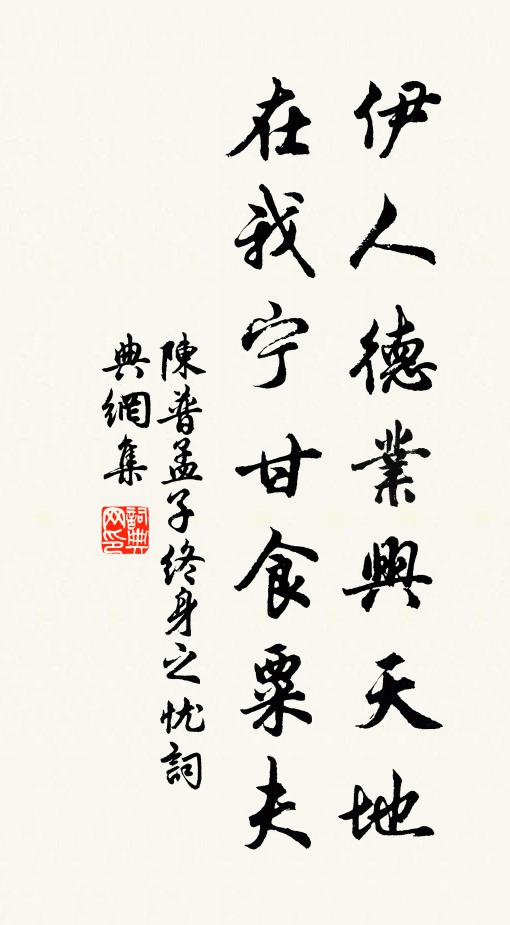 伊人德業興天地
在我宁甘食粟夫
陳普孟子终身之忧詞
典網集
詞典
网印